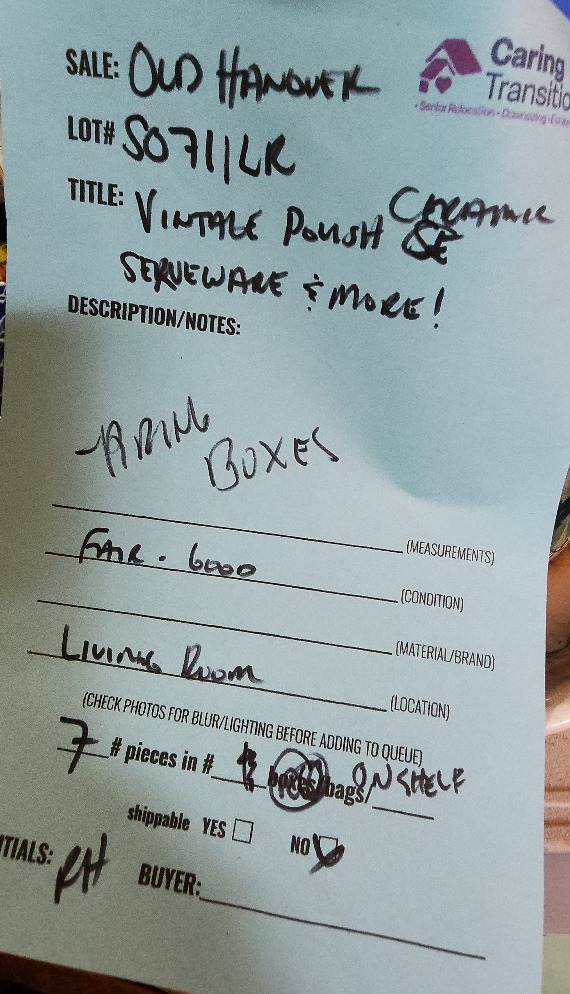 SALE: OLD HANOVER
Caring
Transitio
• Senior Relocation • Downsizing • Estate
LOT# S0711LR
TITLE: VINTAGE POLISH CERAMIC
SERVEWARE & MORE!
DESCRIPTION/NOTES:
BRING
BOXES
(MEASUREMENTS)
FAIR - GOOD (CONDITION)
(MATERIAL/BRAND)
LIVING ROOM (LOCATION)
(CHECK PHOTOS FOR BLUR/LIGHTING BEFORE ADDING TO QUEUE)
7 # pieces in # bags/ ON SHELF
shippable YES NO
TIALS: RH BUYER: